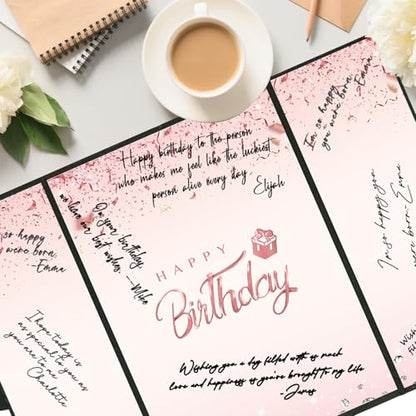 Happy birthday to the person
who makes me feel like the luckiest
person alive every day.
Elijah
On your birthday
we send our best wishes,
—Mike
HAPPY
Birthday
Wishing you a day filled with as much
love and happiness as you've brought to my life
—James
I'm so happy
you were born
—Emma
I hope today is
as special to you as
you are to me
Charlotte
I'm so happy
you were born,
Emma
I'm so happy you
were born, Emma